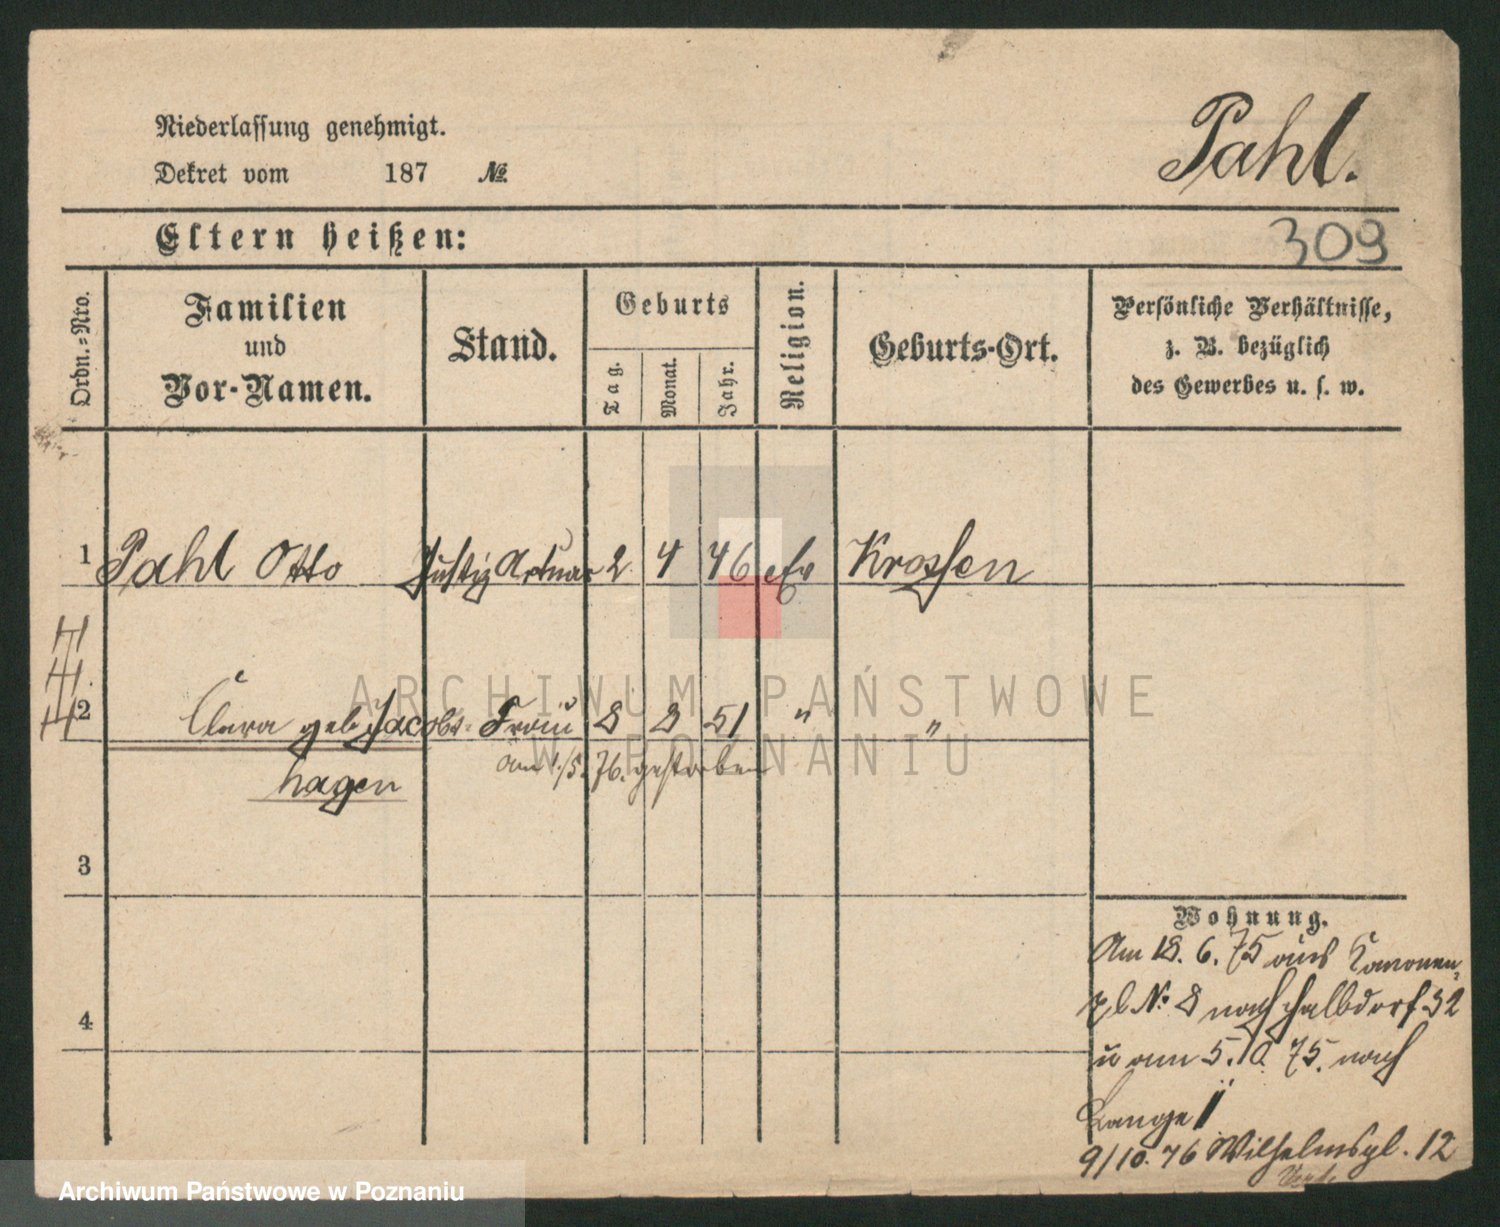 Niederlassung genehmigt.
Dekret vom 187 №
Pahl.
Eltern heißen:
309
Ordn.-Nro.
Familien
und
Vor-Namen.
Stand.
Geburts
Tag.
Monat.
Jahr.
Religion.
Geburts-Ort.
Persönliche Verhältnisse,
z. B. bezüglich
des Gewerbes u. s. w.
1 Pahl Otto Justiz Actuar 2 4 46 ev Krossen
2 Clara geb Jacobs- Frau 8 8 51 " "
hagen
am 1./5. 76. gestorben
3
4
Wohnung.
Am 18. 6. 75 aus Kanonen-
pl. No. 8 nach Halbdorf 32
u am 5. 10. 75. nach
Lange
9/10. 76 Wilhelmspl. 12
ARCHIWUM PAŃSTWOWE
W POZNANIU
Archiwum Państwowe w Poznaniu